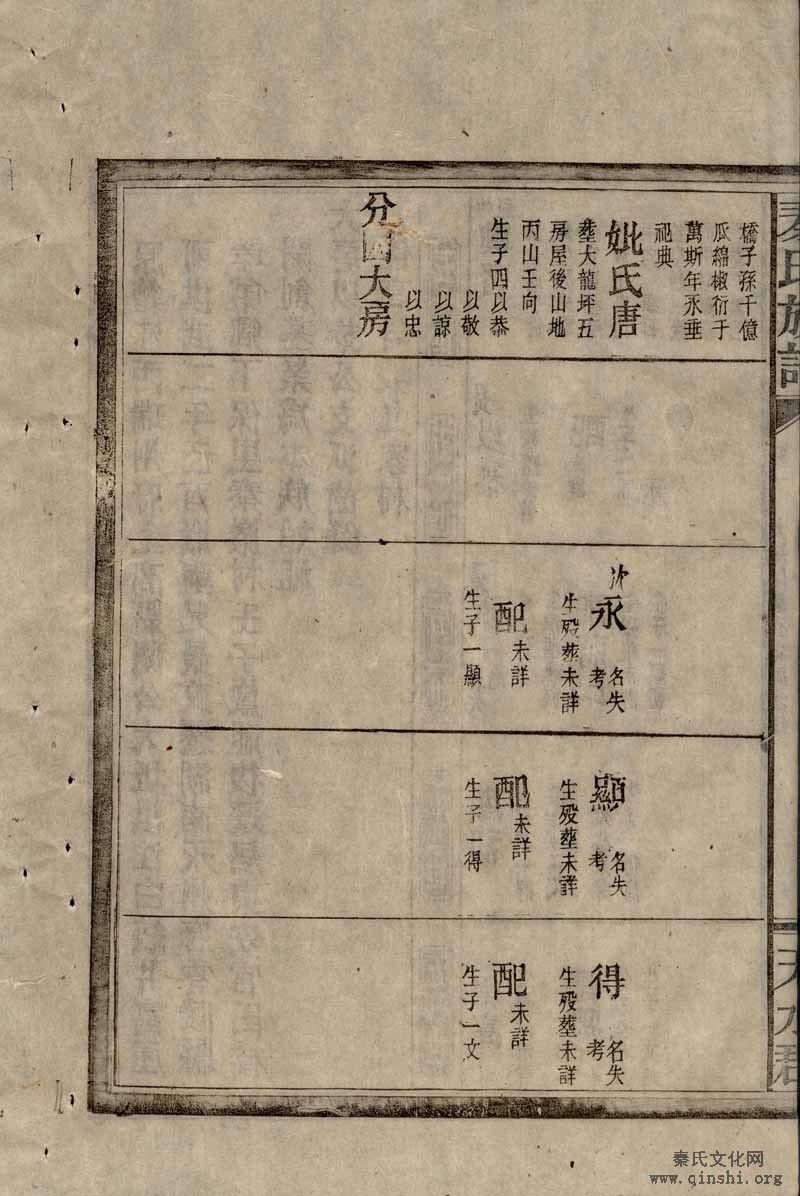 秦氏族譜
天水郡
橋子孫千億
瓜綿椒衍于
萬斯年永垂
祀典
妣氏唐
塟大龍坪五
房屋後山地
丙山壬向
生子四以恭
以敬
以諒
以忠
分四大房
次永名失考
生殁塟未詳
配未詳
生子一顯
顯名失考
生殁塟未詳
配未詳
生子一得
得名失考
生殁塟未詳
配未詳
生子一文
秦氏文化网
www.qinshi.org